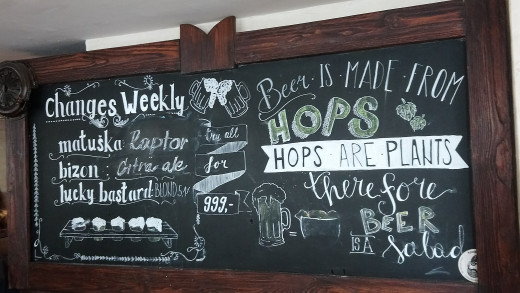 Changes Weekly
matuška Raptor
bizon : Citra ale
lucky bastard BLOND
try all
for
999,-
Beer · IS · MADE · FROM
HOPS
HOPS · ARE · PLANTS
therefore
BEER
IS A salad